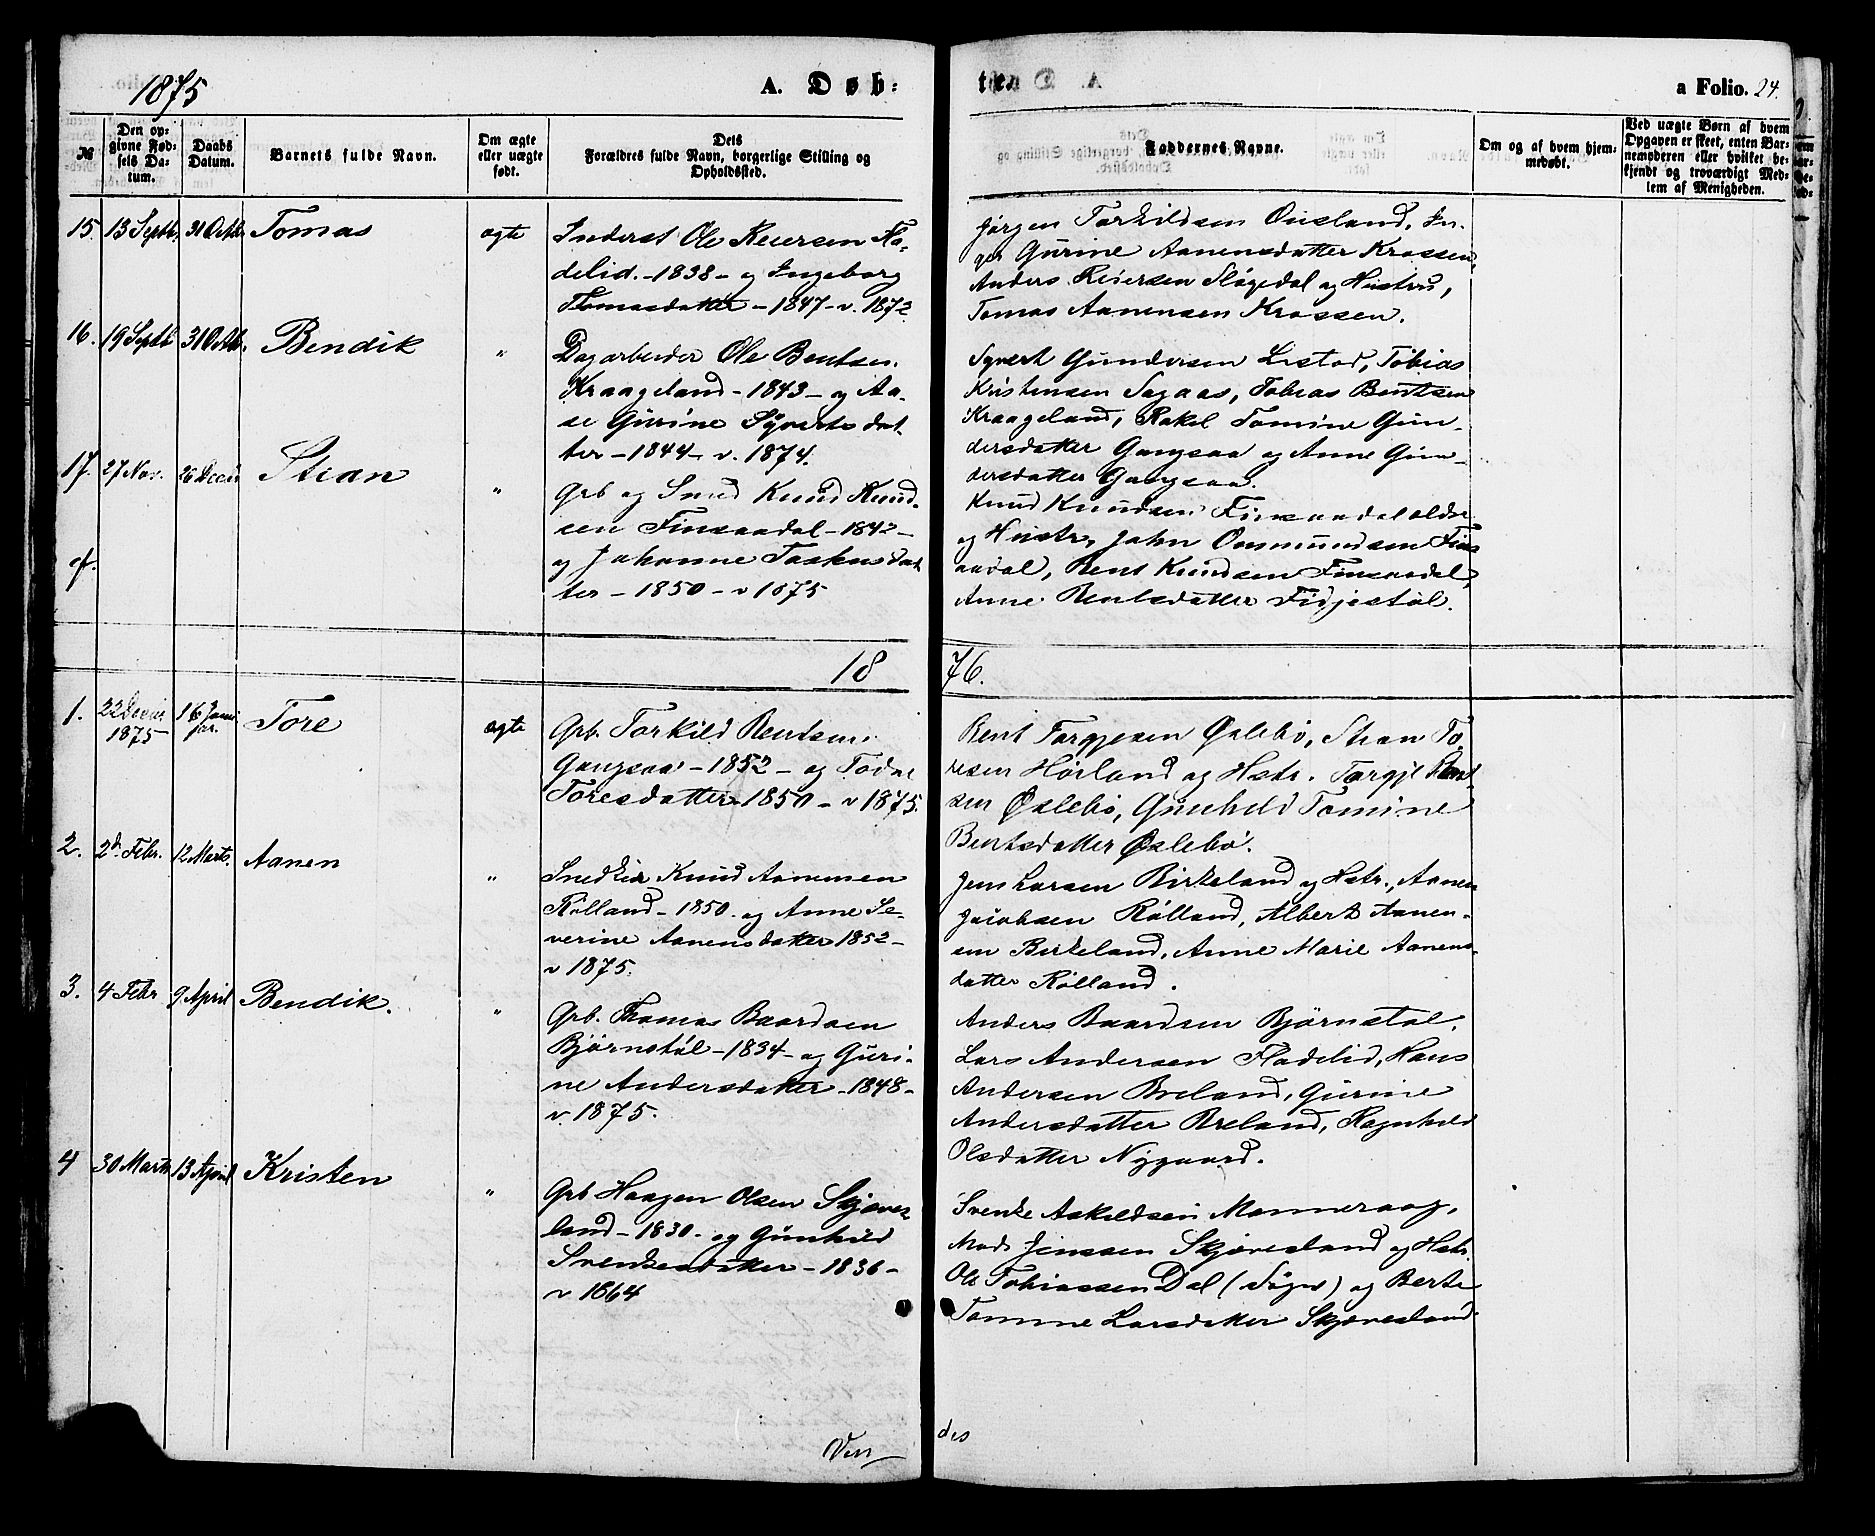 1875
A. Døb:
te.
a Folio. 24.
№
Den op-
givne Fød-
sels Da-
tum.
Daabs
Datum.
Barnets fulde Navn.
Om ægte
eller uægte
født.
Dets
Forældres fulde Navn, borgerlige Stilling og
Opholdssted.
Faddernes Navne.
Om og af hvem hjem-
medøbt.
Ved uægte Børn af hvem
Opgaven er skeet, enten Bar-
nemoderen eller hvilket be-
kjendt og troværdigt Med-
lem af Menigheden.
15. 13 Septb. 31 Octb. Tomas ægte
Inderst Ole Reiersen Fla-
delid. - 1838 - og Ingeborg
Thomasdatter - 1847 - v. 1872
Jørgen Torkildsen Ousland, In-
ger Gurine Aanensdatter Krossen,
Anders Reiersen Sløgedal og Hustru,
Tomas Aanensen Krossen.
16. 19 Septb 31 Octb. Bendik "
Dagarbeider Ole Bentsen
Kraageland - 1843 - og Aa-
se Gurine Syvertsdat-
ter - 1844 - v. 1874.
Syvert Gundersen Lestod, Tobias
Kristensen Sagaas, Tobias Bentsen
Kraageland, Rakel Tomine Gun-
dersdatter Gangsaa og Anne Gun-
dersdatter Gangsaa.
17. 27 Nov. 26 Decbr Stian "
Grb og Smed Knud Knud-
sen Finsaadal - 1842 -
og Johanne Taskensdat
ter - 1850 - v 1875
Knud Knudsen Finsaadal ældre
og Hustr, John Ousmundsen Fins
aadal, Bent Knudsen Finsaadal,
Anne Bentsdatter Fidjestøl.
18 76.
1. 22 Decbr 1875 16 Janu ar. Tore ægte
Grb. Torkild Bentsen
Gangsaa - 1852 - og Todne
Toresdatter - 1850 - v 1875.
Bent Torgjesen Øslebø, Stian To
resen Hørland og Hstr. Torgje Bent
sen Øslebø, Gunhild Tomine
Bentsdatter Øslebø.
2. 2d Febr. 12 Marts. Aanen "
Snedker Knud Aanensen
Rølland - 1850. og Anne Se-
verine Aanensdatter 1852 -
v 1875.
Jens Larsen Birkeland og Hstr., Aanen
Jacobsen Rølland, Albert Aanen-
sen Birkeland, Anne Marie Aanens-
datter Rølland.
3. 4 Febr 9 April Bendik. "
Grb. Thomas Baardsen
Bjørnstøl - 1834 - og Guri-
ne Andersdatter - 1848 -
v. 1875.
Anders Baardsen Bjørnstøl,
Lars Andersen Fladelid, Hans
Andersen Breland, Gurine
Andersdatter Breland, Ragnhild
Olsdatter Nygaard.
4 30 Marts 13 April Kristen "
Grb Haagen Olsen Skjæves
land - 1830. og Gunhild
Svenkesdatter - 1836 -
v 1864
Svenke Askildsen Manneraag,
Mads Jenssen Skjævesland og Hstr.
Ole Tobiassen Dal (Søgne) og Berte
Tomine Larsdatter Skjævesland
Ven
des